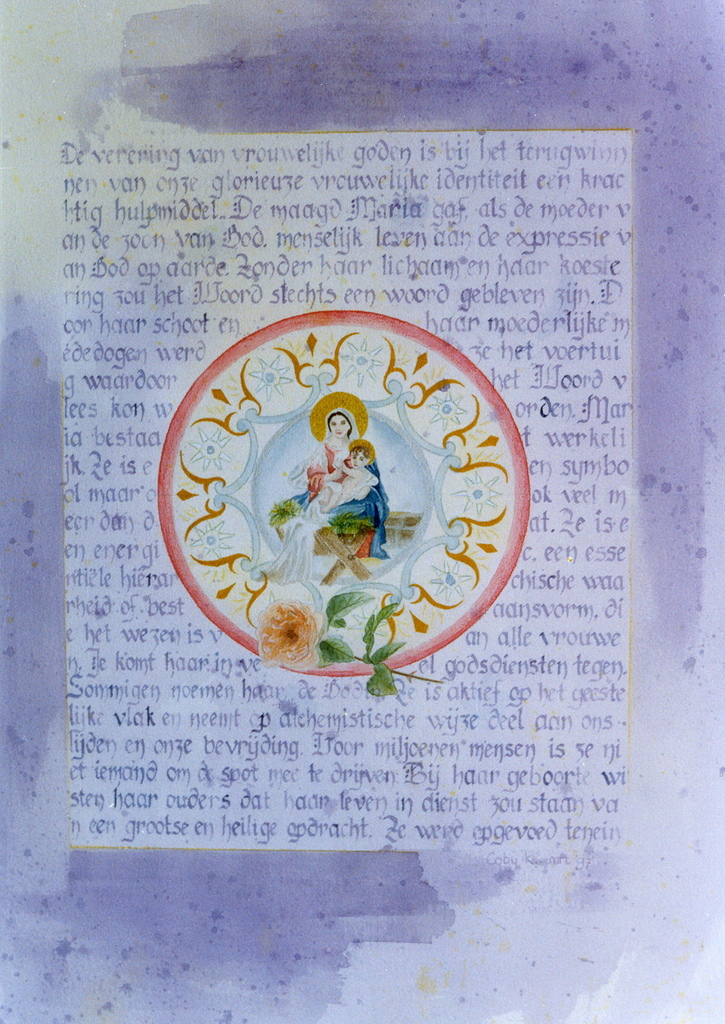 De verering van vrouwelijke goden is bij het terugwinn
nen van onze glorieuze vrouwelijke identiteit een krac
htig hulpmiddel. De maagd Maria gaf, als de moeder v
an de zoon van God, menselijk leven aan de expressie v
an God op aarde. Zonder haar lichaam en haar koeste
ring zou het Woord slechts een woord gebleven zijn. D
oor haar schoot en haar moederlijke m
ededogen werd ze het voertui
g waardoor het Woord v
lees kon w orden. Mar
ia bestaa t werkeli
jk. Ze is e en symbo
ol maar o ok veel m
eer dan d at. Ze is e
en energi c, een esse
ntiële hierar chische waa
rheid of best aansvorm, di
e het wezen is v an alle vrouwe
n. Je komt haar in ve el godsdiensten tegen.
Sommigen noemen haar, de Godin. Ze is aktief op het geeste
lijke vlak en neemt op alchemistische wijze deel aan ons
lijden en onze bevrijding. Voor miljoenen mensen is ze ni
et iemand om de spot mee te drijven. Bij haar geboorte wi
sten haar ouders dat haar leven in dienst zou staan va
n een grootse en heilige opdracht. Ze werd opgevoed tenein
Coby 97